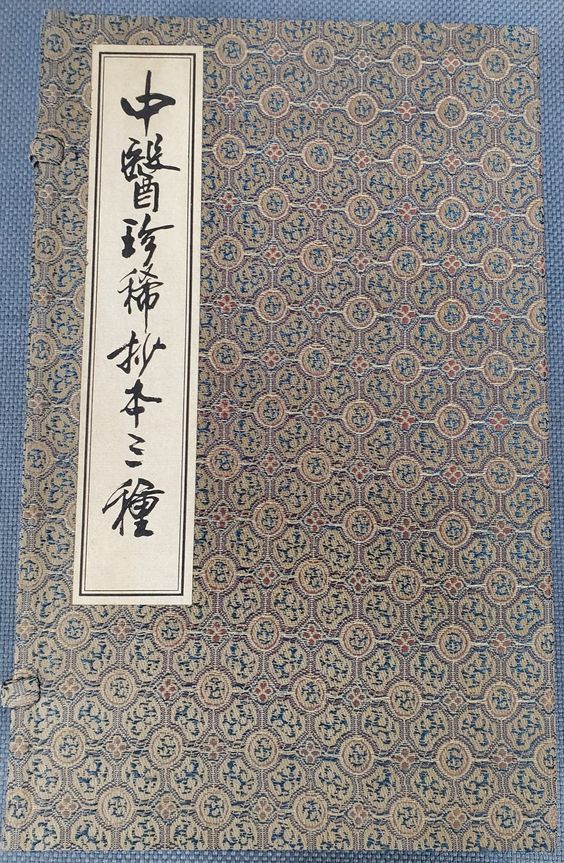 中醫珍稀抄本三種